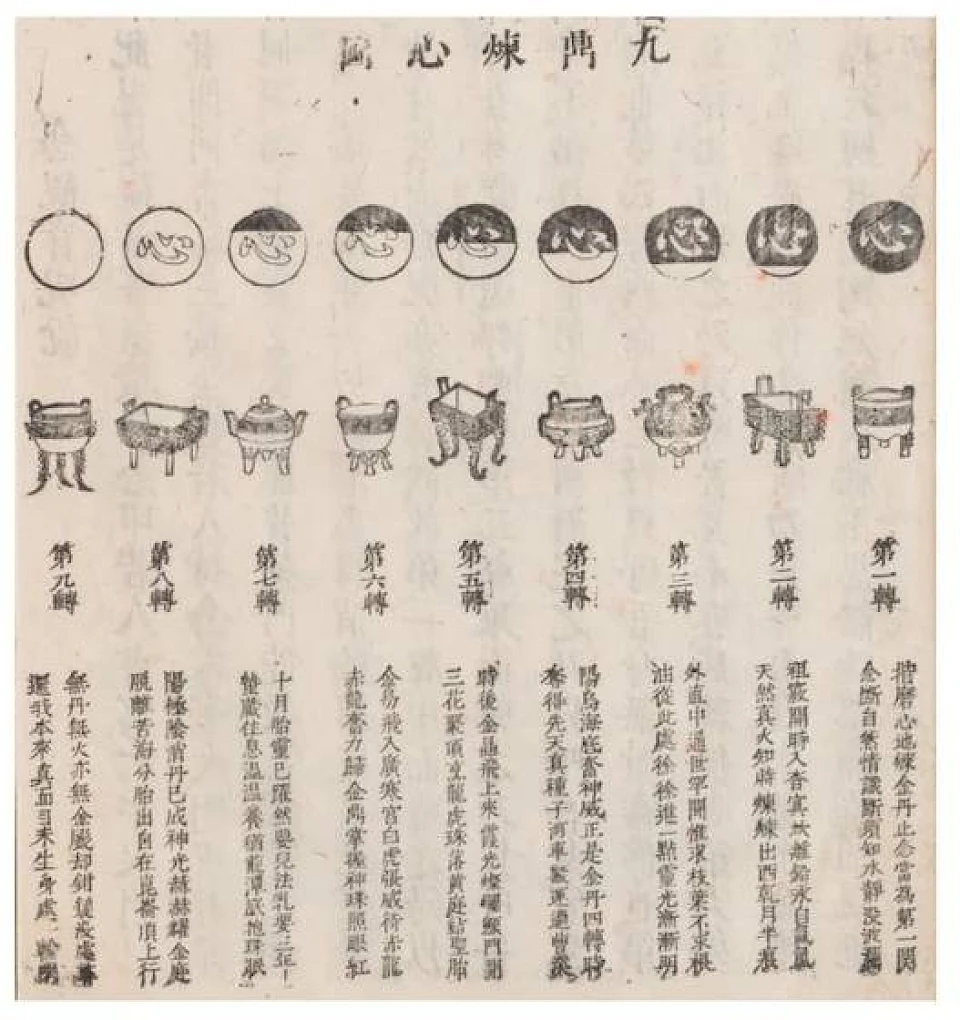 九鼎煉心圖
心
心
心
心
心
心
心
心
第一轉
第二轉
第三轉
第四轉
第五轉
第六轉
第七轉
第八轉
第九轉
揩磨心地煉金丹止念當為第一関
念斷自然情識斷須知水靜没波瀾
祖竅開時入杳冥坎離鉛汞自氤氳
天然真火知時煉煉出西乾月半痕
外直中通世罕聞惟求枝葉不求根
油從此處徐徐進一點靈光漸漸明
陽烏海底奮神威正是金丹四轉時
奪得先天真種子河車緊運過曹溪
時後金晶飛上來霞光燦爛門開
三花聚頂龍虎珠落黄庭結聖胎
金烏飛入廣寒宮白虎張威待赤龍
赤龍奮力歸金鼎掌握神珠照眼紅
十月胎靈已躍然嬰兒法乳要三年
蟄藏住息温温養猶龍潭底抱珠眠
陽極陰消丹已成神光赫赫耀金庭
脱離苦海分胎出自在崑崙頂上行
無丹無火亦無金脱却鉗鎚没處尋
還我本來真面目未生身處一輪明